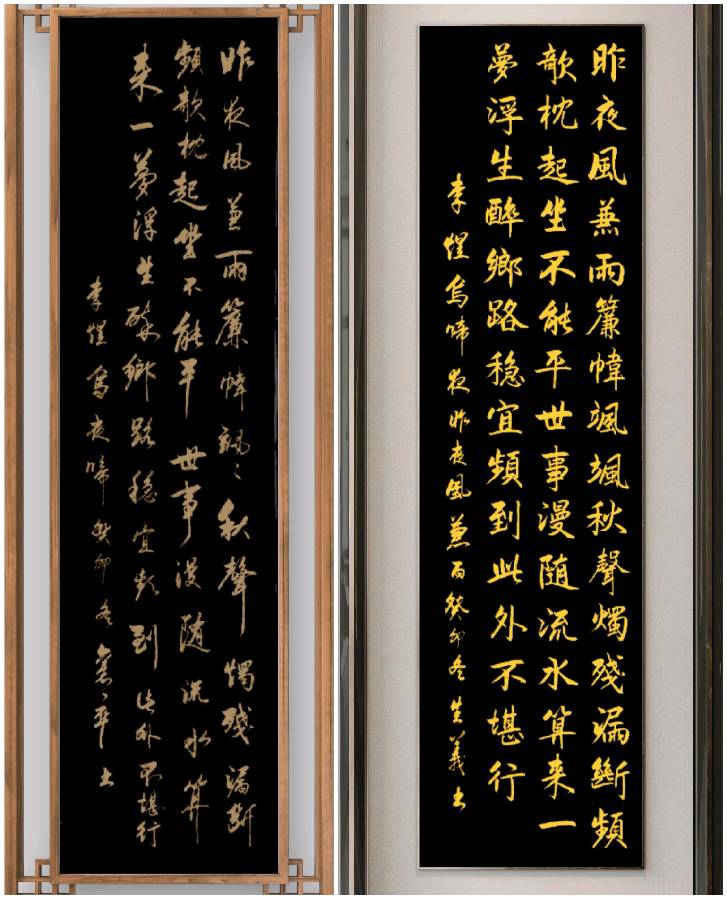 昨夜風兼雨簾幃颯〻秋聲燭殘漏断
頻欹枕起坐不能平世事漫随流水算
来一夢浮生醉鄉路穏宜頻到此外不堪行
李煜烏夜啼癸卯冬平书
昨夜風兼雨簾幃颯颯秋聲燭殘漏斷頻
欹枕起坐不能平世事漫随流水算来一
夢浮生醉鄉路穏宜頻到此外不堪行
李煜烏啼夜昨夜風兼雨癸卯冬生義书